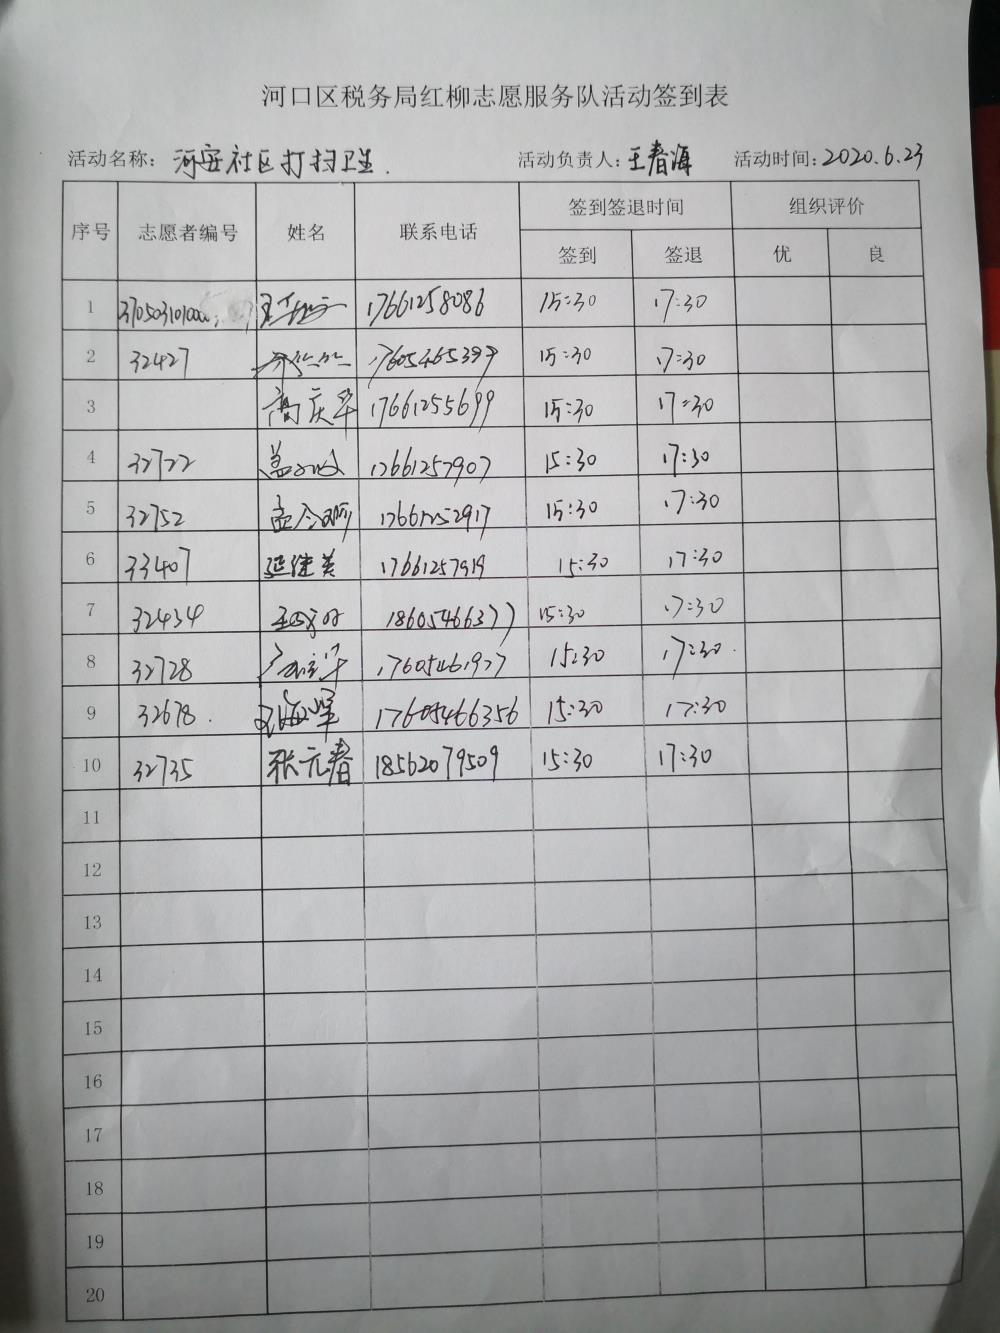 河口区税务局红柳志愿服务队活动签到表
活动名称：河安社区打扫卫生. 活动负责人：王春海 活动时间：2020.6.23
序号 志愿者编号 姓名 联系电话 签到签退时间 组织评价
签到 签退 优 良
1 17661258086 15:30 17:30
2 32427 17605465399 15:30 17:30
3 高庆华 17661255699 15:30 17:30
4 32722 17661257907 15:30 17:30
5 32752 17661252917 15:30 17:30
6 33407 延继美 17661257919 15:30 17:30
7 32434 18605466377 15:30 17:30
8 32728 17605461927 15:30 17:30
9 32678. 刘海军 17605466356 15:30 17:30
10 32735 张元春 18562079509 15:30 17:30
11
12
13
14
15
16
17
18
19
20